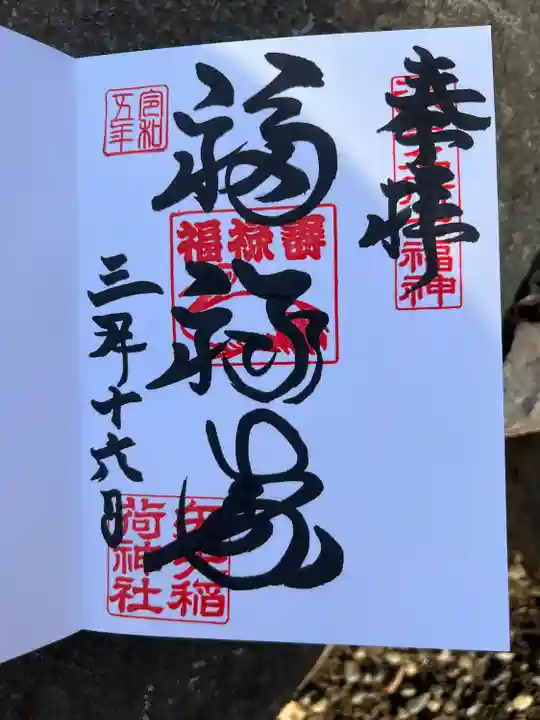 奉拝
福神
福禄壽
福禄寿
令和
五年
三月十六日
矢先稲
荷神社